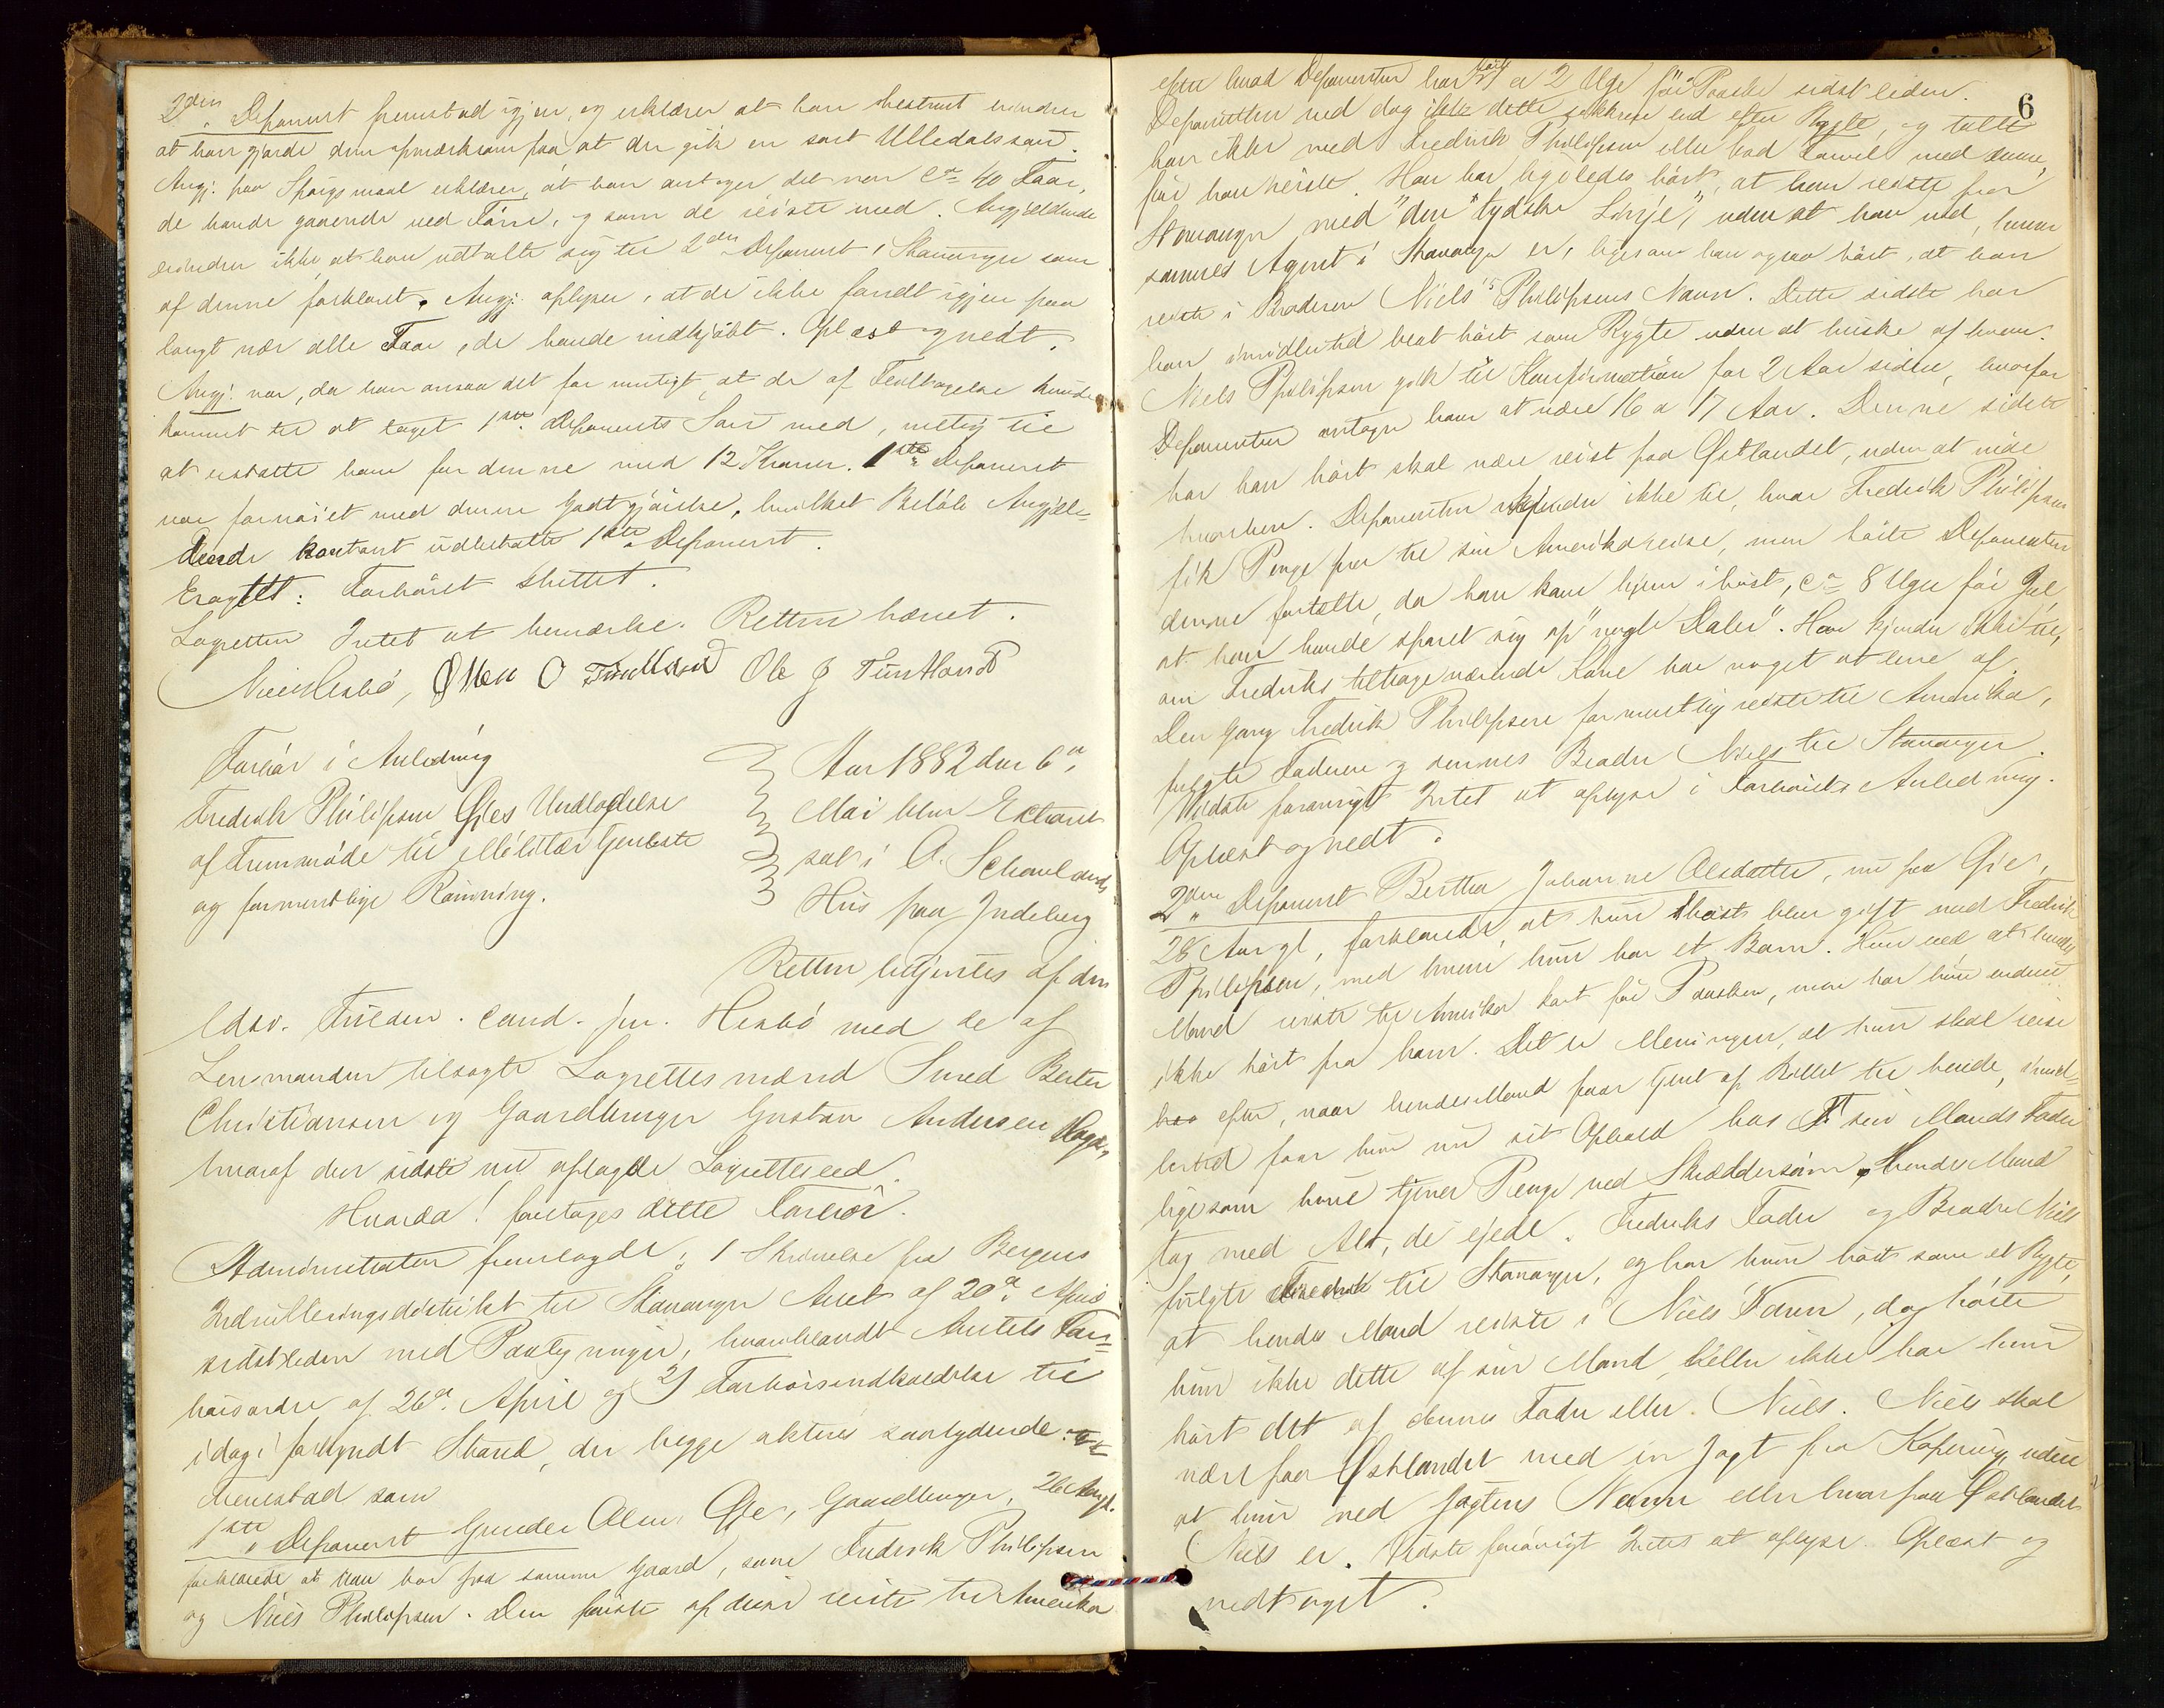 2den Deponent fremstod igjen, og erklærer at han bestemt erindrer
at han gjorde dem opmærksom paa at der gik en sort Ulledalssau.
Angj. paa Spørgsmaal erklærer, at han antager det var ca 40 Faar,
de havde gaaende ved Tøn, og som de reiste med. Angjældende
erindrer ikke at han udtalte sig til 2den Deponent i Stavanger som
af denne forklaret. Angj. oplyser, at de ikke fandt igjen paa
langt nær alle Faar, de havde indkjøbt. Oplæst og vedt.
Angj. var, da han ansaa det for muligt, at de af Feiltagelse kunde
kommet til at taget 1ste Deponents Sau med, villig til
at erstatte ham for denne med 12 Kroner. 1ste Deponent
var fornøiet med denne Godtgjørelse, hvilket Beløb Angjæl-
dende kontant udbetalte 1ste Deponent.
Eragtet: Forhøret sluttet.
Lagretten Intet at bemærke. Retten hævet.
Niels Hesbø, O Tuntland Ole J Tuntland
Forhør i Anledning
Fredrik Philipsen Øies Undladelse
af Fremmøde til Militær Tjeneste
og formentlige Rømning.
Aar 1882 den 6te
Mai blev Extraret
sat i A. Schoulands
Hus paa Jndeberg
Retten betjentes af den
edsv. Fuldm. cand. jur. Hesbø med de af
Lensmanden tilsagte Lagrettesmænd Smed Berter
Christiansen og Gaardbruger Gustav Andersen Haga,
hvoraf den sidste nu aflagde Lagretteseed.
Hvorda! foretages dette Forhør.
Administrator fremlagde: 1 Skrivelse fra Bergens
Indrulleringsdistrikt til Stavanger Amt af 20de April
sidstleden med Paategninger, hvoriblandt Amtets For-
hørsordre af 26de April og 2) Forhørsindkaldelse til
idag i forkyndt Stand, der begge akteres saalydende:
Fremstod som
1ste Deponent Gunder Olsen Øie, Gaardbruger, 26 Aar gl.
forklarede, at han bor paa samme Gaard, som Fredrik Philipsen
og Niels Philipsen. Den første af disse reiste til Amerika
6
efter hvad Deponenten har hørt ca 2 Uge før Paaske sidstleden.
Deponenten ved dog ikke dette sikkrere end efter Rygte, og talte
han ikke med Fredrik Philipsen eller bød Farvel med denne,
før han reiste. Han har ligeledes hørt, at han reiste fra
Stavanger med "den tydske Linje", uden at han ved, hvem
sammes Agent i Stavanger er, ligesom han ogsaa hørt, at han
reiste i Broderen Niels Philipsens Navn. Dette sidste har
han imidlertid blot hørt som Rygte uden at huske af hvem.
Niels Philipsen gik til Konfirmation for 2 Aar siden, hvorfor
Deponenten antager ham at være 16 a 17 Aar. Denne sidste
har han hørt skal være reist paa Østlandet, uden at vide
hvorhen. Deponenten kjender ikke til, hvor Fredrik Philipsen
fik Penge fra til sin Amerikareise, men hørte Deponenten
denne fortalte, da han kom hjem i høst, ca 8 Uger før Jul,
at han havde sparet sig op "nogle Daler". Han kjender ikke til,
om Fredriks tilbageværende Kone har noget at leve af.
Den Gang Fredrik Philipsen formentlig reiste til Amerika,
fulgte Faderen og dennes Broder Niels til Stavanger.
Vidste forøvrigt Intet at oplyse i Forhørets Anledning.
Oplæst og vedt.
2den Deponent Bertha Johanne Olsdatter, nu fra Øie,
28 Aar gl, forklarede, at hun i høst blev gift med Fredrik
Philipsen, med hvem hun har et Barn. Hun ved at hendes
Mand reiste til Amerika kort før Paasken, men har hun endnu
ikke hørt fra ham. Det er Meningen, at hun skal reise
efter, naar hendes Mand faar tjent op Billet til hende, imid-
lertid faar hun nu sit Ophold hos sin Mands Fader
ligesom hun tjener Penge ved Skræddersøm. Hendes Mand
tog med Alt, de ejede. Fredriks Fader og Broder Niels
fulgte Fredrik til Stavanger, og har hun hørt som et Rygte,
at hendes Mand reiste i Niels Navn, dog hørte
hun ikke dette af sin Mand, heller ikke har hun
hørt det af dennes Fader eller Niels. Niels skal
være paa Østlandet med en Jagt fra Kopervig, uden
at hun ved Jagtens Navn eller hvor paa Østlandet
Niels er. Vidste forøvrigt Intet at oplyse. Oplæst og
vedtaget.